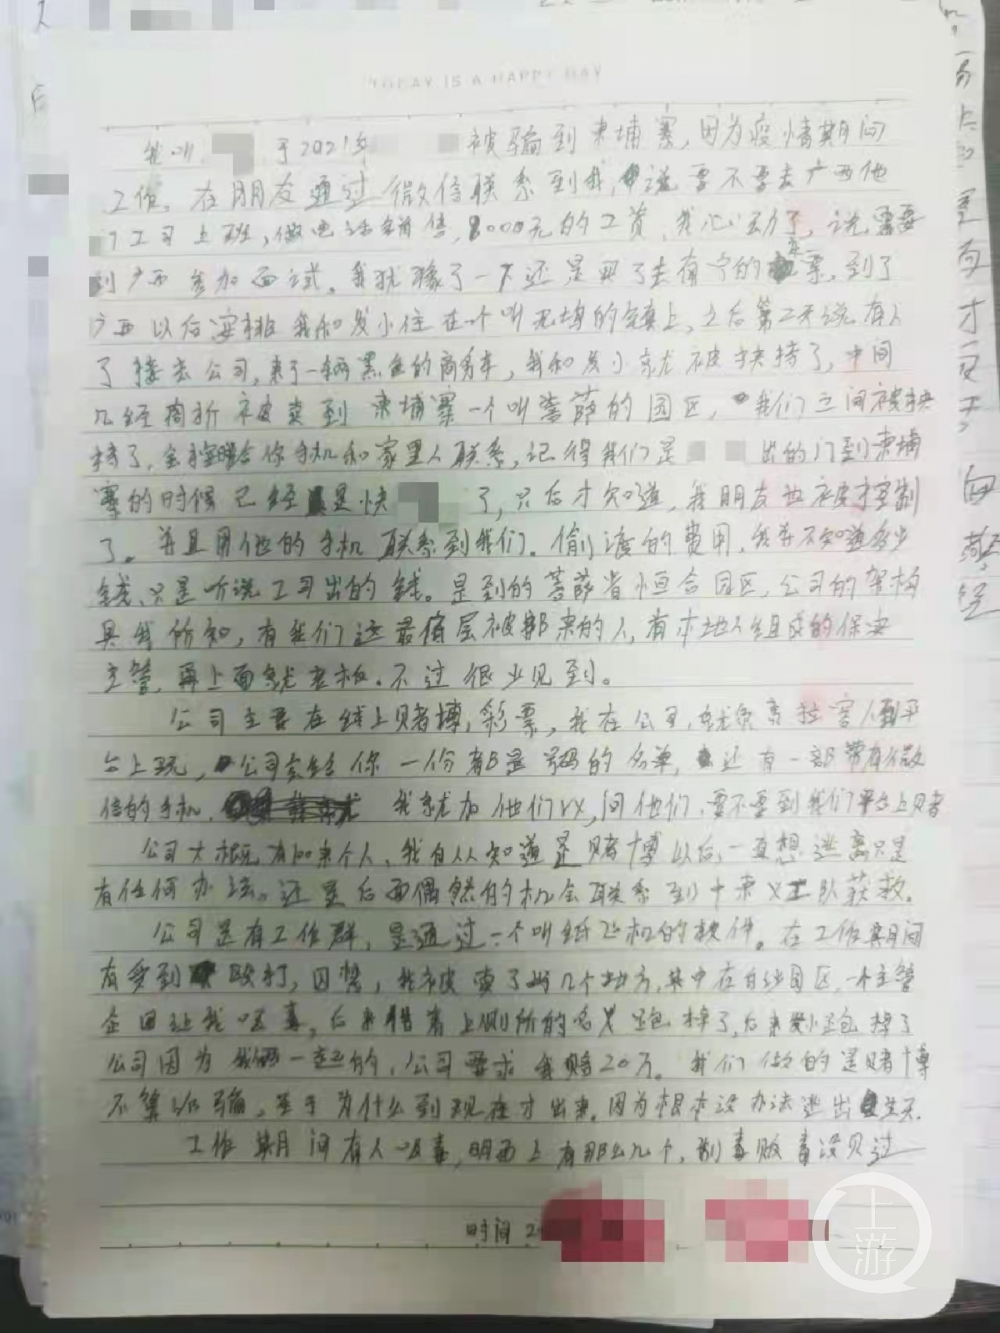 TODAY IS A HAPPY DAY
我叫 于2021年 被骗到柬埔寨,因为疫情期间
工作,在朋友通过微信联系到我,说要不要去广西他
工司上班,做电话销售,8000元的工资,我心动了,说需要
到广西参加面试,我犹豫了一下还是买了去南宁的票,到了
广西以后安排我和发小住在一个叫 的镇上,之后第二天说有人
了接去公司,来了一辆黑色的商务车,我和发小就被挟持了,中间
几经周折被卖到柬埔寨一个叫菩萨的园区,我们之间被挟
持了, 你手机和家里人联系,记得我们是 出的门到柬埔
寨的时候已经是快 了,只后才知道,我朋友也被控制
了。并且用他的手机联系到我们。偷渡的费用,我并不知道多少
钱,只是听说工司出的钱。是到的菩萨省恒合园区,公司的架构
具我所知,有我们这最低层被骗来的人,有本地人组成的保安
主管,再上面就老板.不过很少见到。
公司主要在线上赌博,彩票,我在公司,就负责拉客人到平
台上玩,公司会给你一份都是号码的名单,还有一部带有微
信的手机, 我就加他们以,问他们,要不要到我们平台上赌
公司大概有100来个人,我自从知道是赌博以后,一直想逃离只是
有任何办法。还是后面偶然的机会联系到 队获救.
公司是有工作群,是通过一个叫纸飞机的软件。在工作期间
有受到殴打,囚禁,我被卖了好几个地方,其中在 园区,一个主管
企图让我吸毒,后来借着上厕所的名义跑掉了,后来发小跑掉了
公司因为我俩一起的,公司要求我赔20万。我们做的是赌博
不算诈骗,至于为什么到现在才出来,因为根本没办法逃出
工作期间有人吸毒,明面上有那么几个,制毒贩毒没见过
时间 2
上游